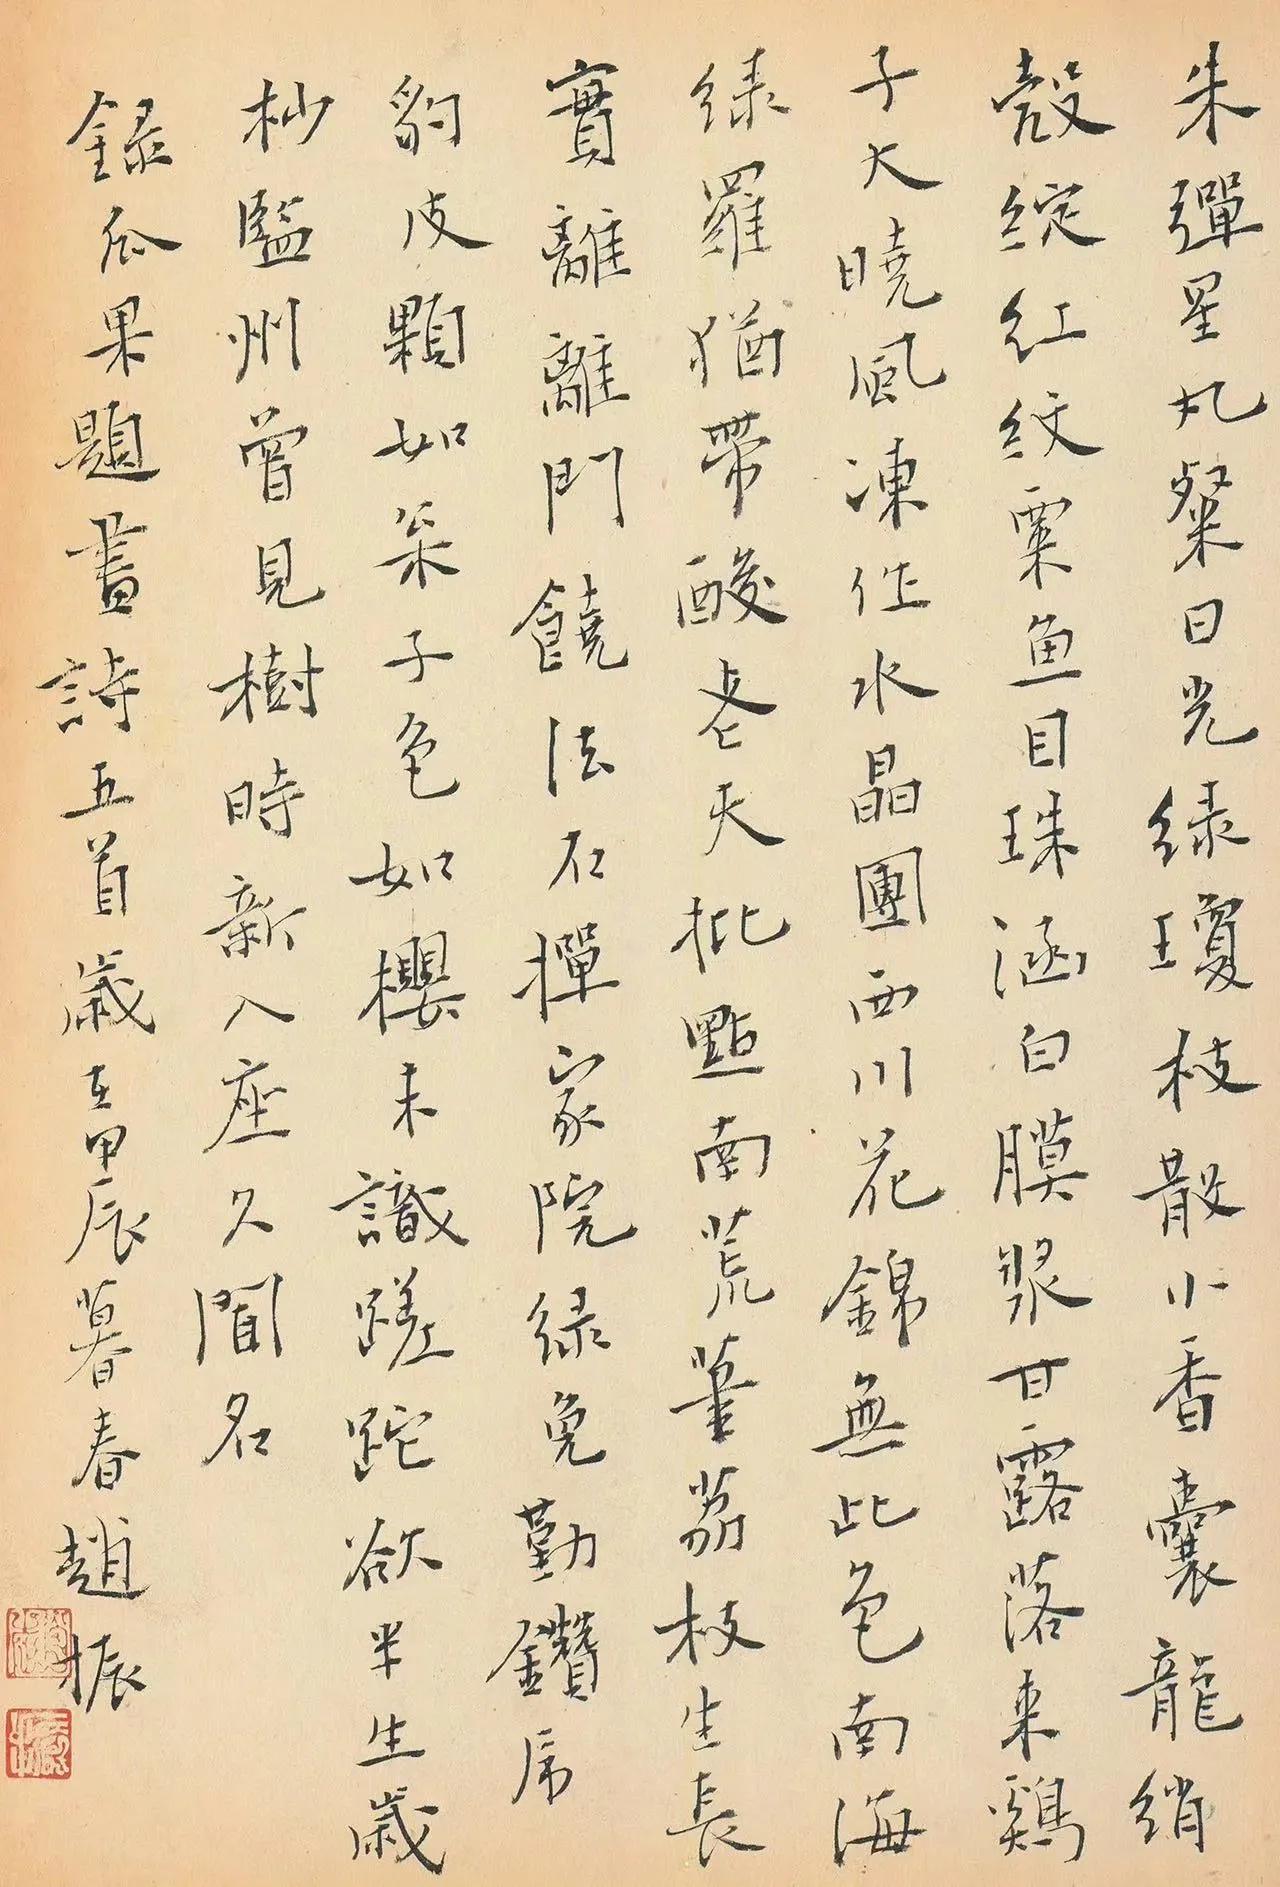 朱彈星丸粲日光綠瓊枝散小香囊龍綃
殼綻紅紋粟魚目珠涵白膜漿甘露落来鷄
子大曉風凍作水晶團西川花錦無此色南海
綠羅猶帶酸老天批點南荒董荔枝生長
實離離門饒法石撣家院綠兔勤鑽虎
豹皮顆如芡子色如櫻未識蹉跎欲半生歲
杪監州曾見樹時新入座久聞名
録瓜果題畫詩五首歲在甲辰暮春趙振